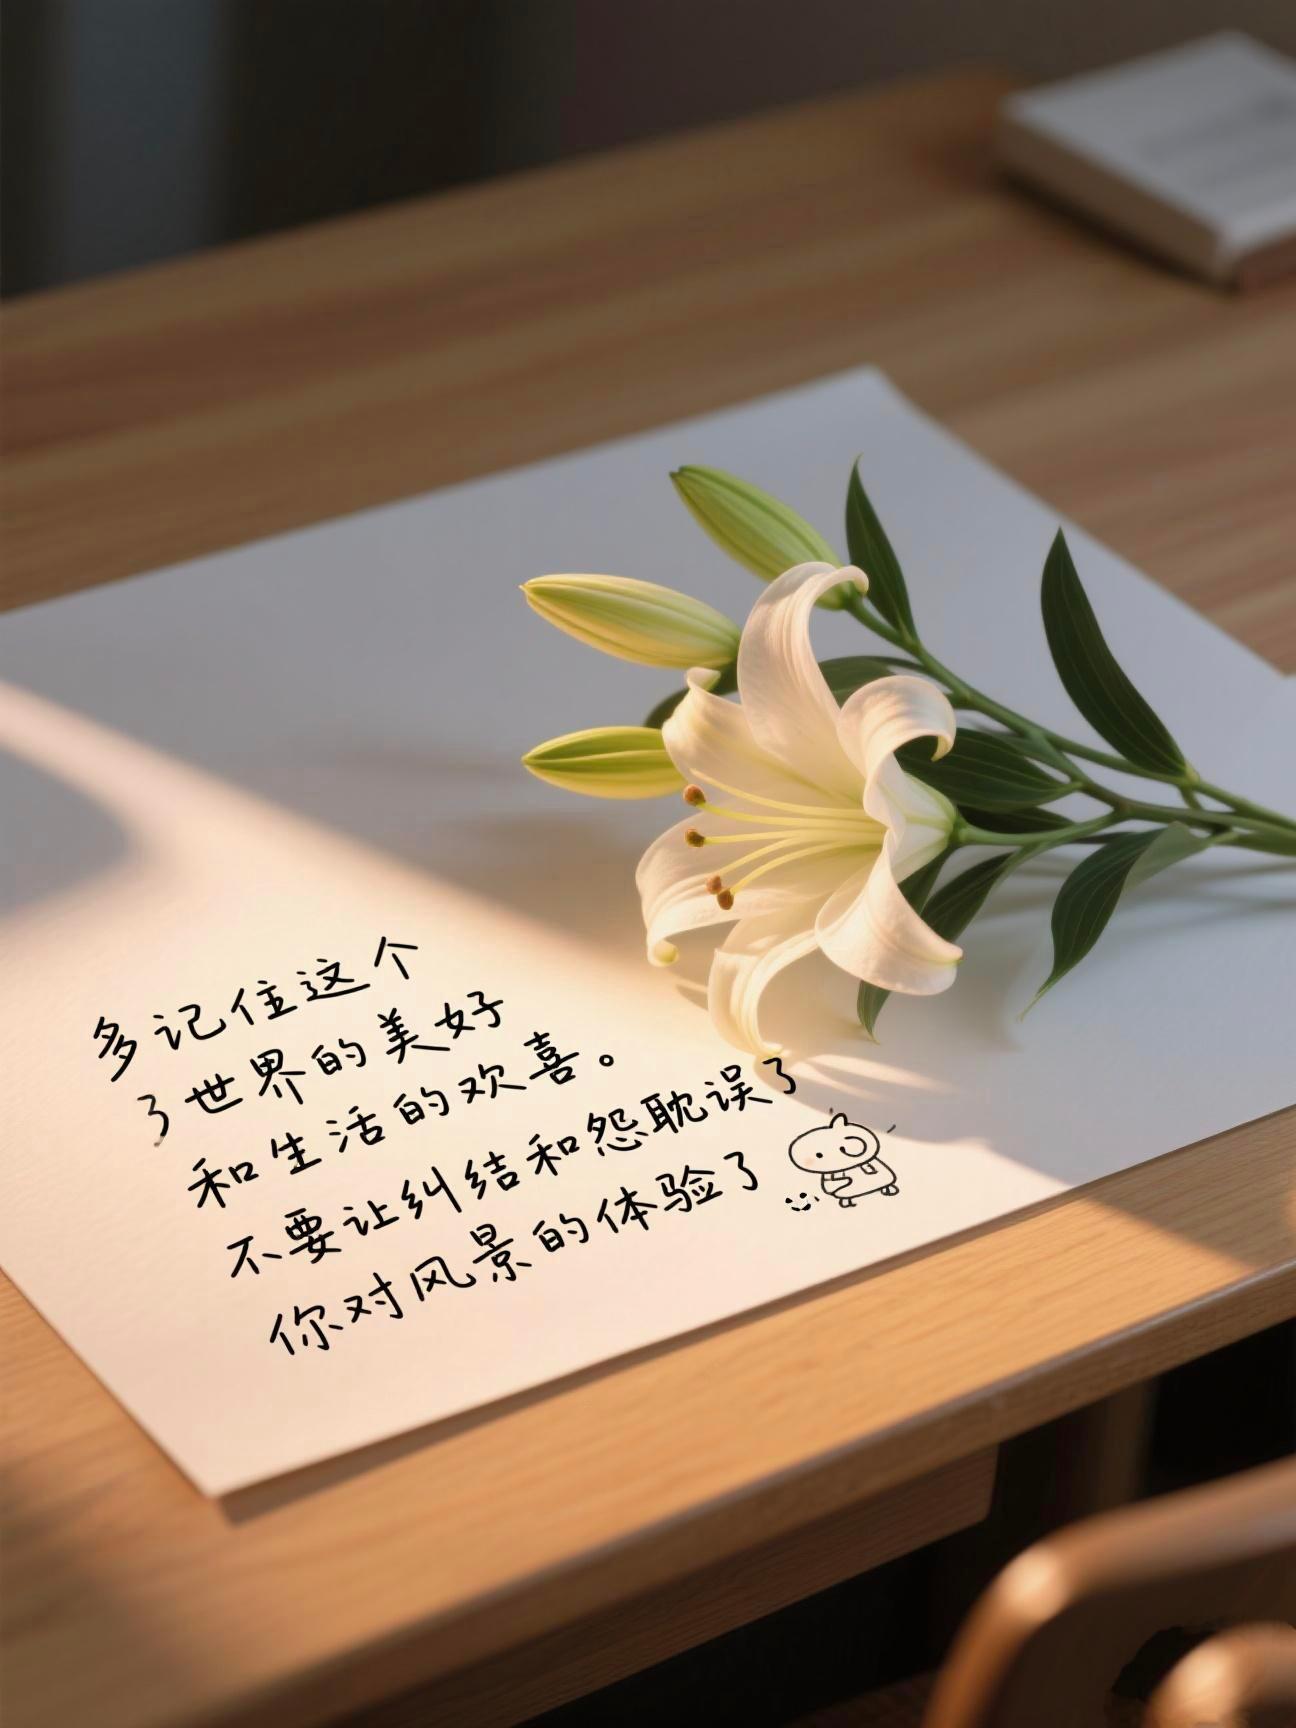 多记住这个
了世界的美好
和生活的欢喜。
不要让纠结和怨耽误了
你对风景的体验了